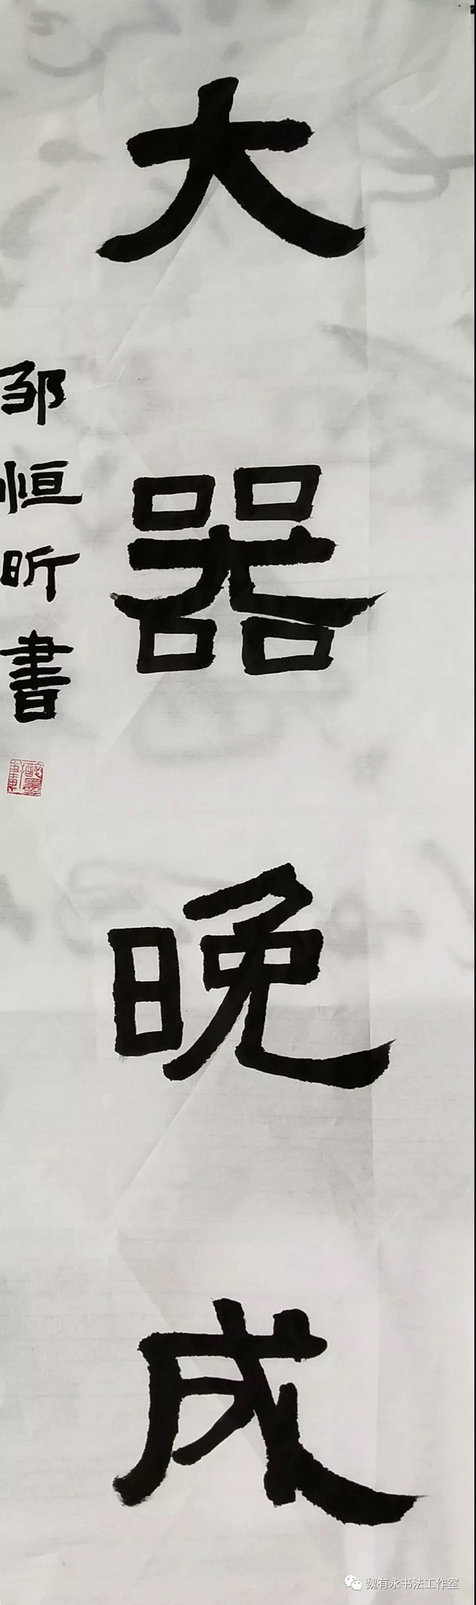 大器晚成
邹恒昕書
魏有永书法工作室